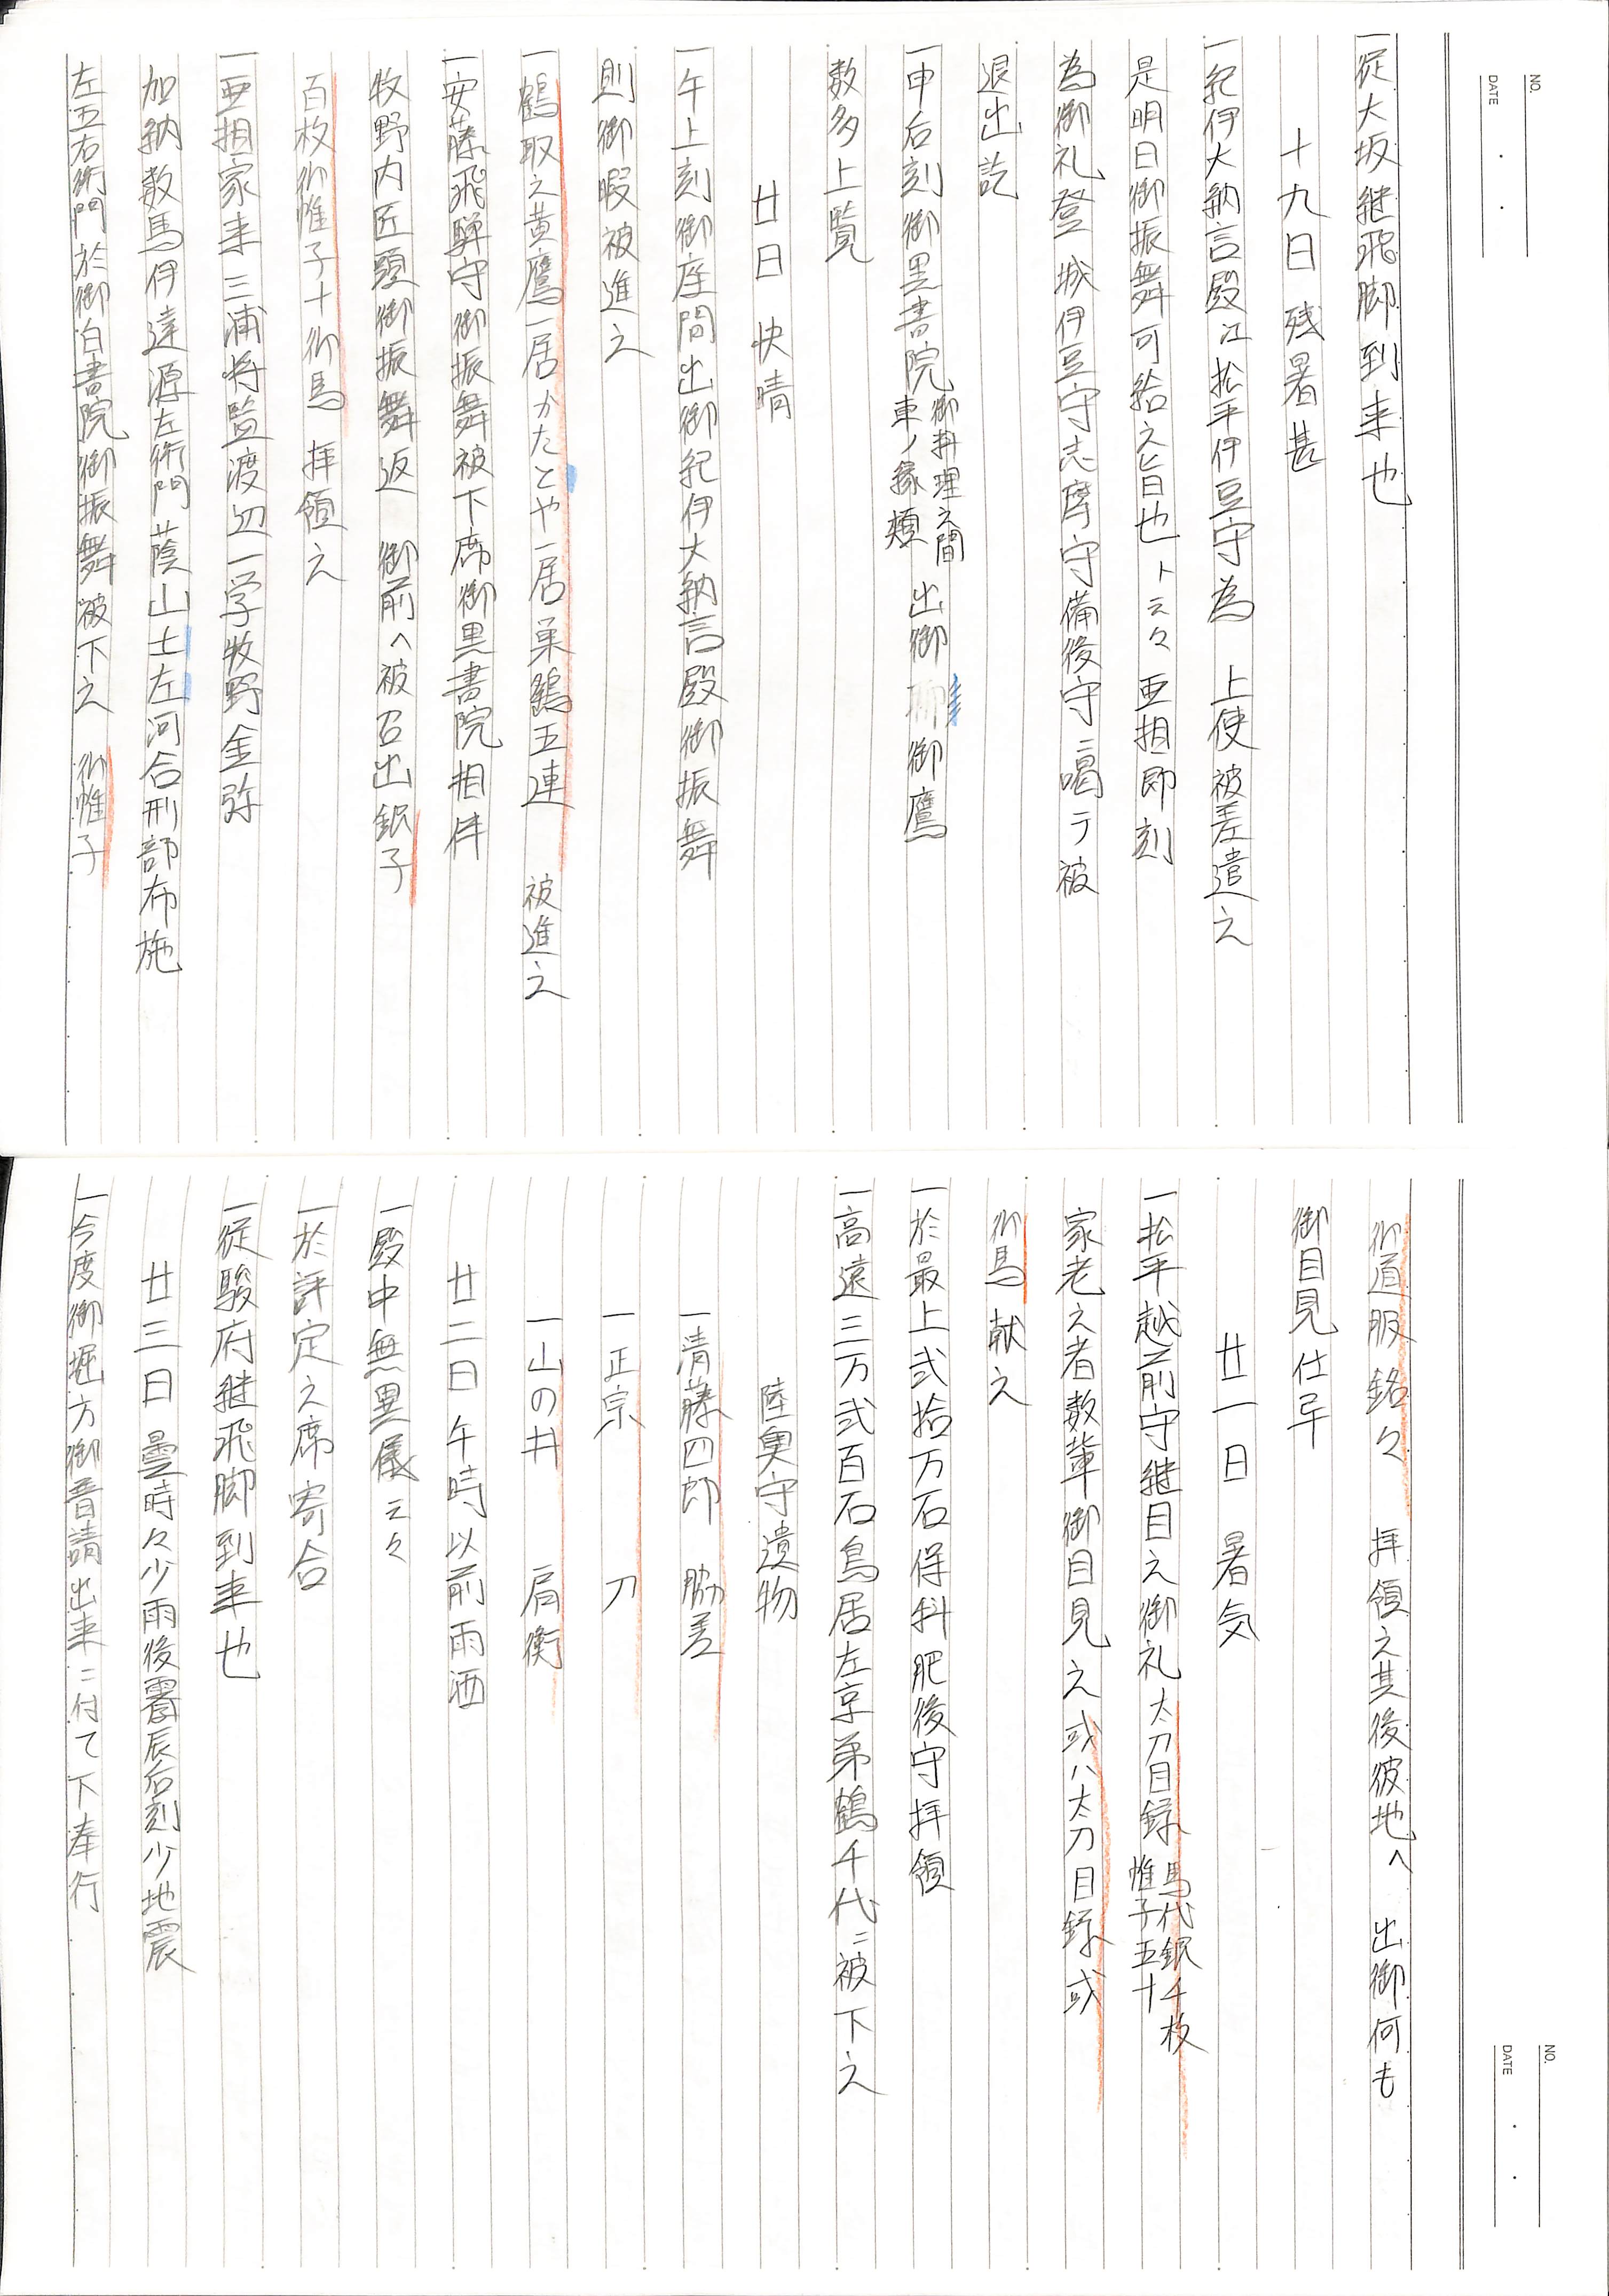 NO.
DATE
一従大坂継飛脚到来也
十九日 残暑甚
一紀伊大納言殿江松平伊豆守為 上使被差遣之
是明日御振舞可給之旨也ト云々亜相即刻
為御礼登 城伊豆守志摩守備後守ニ喝テ被
退出訖
一申后刻御黒書院御料理之間車ノ縁頬 出御 御鷹
数多上覧
廿日 快晴
一午上刻御座間出御紀伊大納言殿御振舞
則御暇被進之
一鶴取之黄鷹一居かたとや一居巣鷂五連 被進之
一安藤飛騨守御振舞被下席御黒書院相伴
牧野内匠頭御振舞返 御前へ被召出銀子
百枚御帷子十御馬 拝領之
一亜相家来三浦将監渡辺一学牧野金弥
加納数馬伊達源左衛門蔭山土左河合刑部布施
左五右衛門於御白書院御振舞被下之 御帷子
NO.
DATE
御道服銘々 拝領之其後彼地へ 出御何も
御目見仕訖
廿一日 暑気
一松平越前守継目之御礼太刀目録馬代銀千枚帷子五十
家老之者数輩御目見之或ハ太刀目録或
御馬献之
一於最上弐拾万石保科肥後守拝領
一高遠三万弐百石鳥居左京弟鶴千代ニ被下之
陸奥守遺物
一清藤四郎 脇差
一正宗 刀
一山の井 肩衝
廿二日 午時以前雨洒
一殿中無異儀云々
一於評定之席寄合
一従駿府継飛脚到来也
廿三日 曇時々少雨後霽辰后刻少地震
一今度御堀方御普請出来ニ付て下奉行